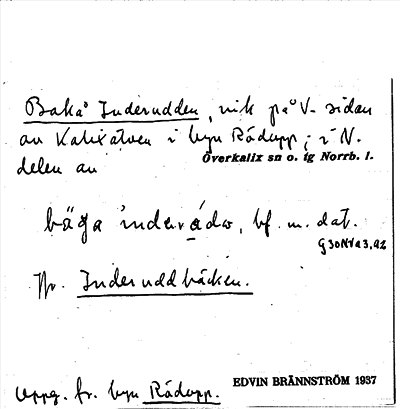 Baka° Inderudden, vik på V- sidan
av Kalixälven i byn Rödupp; i N.
delen av Överkalix sn o. tg Norrb. l.
bäga inderádω, bf. m. dat.
G30NV a 3,92
Jfr. Inderuddbäcken.
Uppg. fr. byn Rödupp. EDVIN BRÄNNSTRÖM 1937